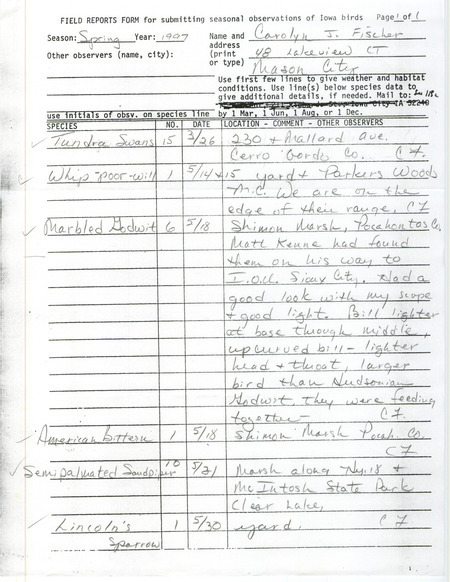 FIELD REPORTS FORM for submitting seasonal observations of Iowa birds Page 1 of 1
Season: Spring Year: 1997 Name and Carolyn J. Fischer
address
Other observers (name, city): (print 48 Lakeview CT
or type) Mason City
Use first few lines to give weather and habitat
conditions. Use line(s) below species data to
give additional details, if needed. Mail to:
use initials of obsv. on species line by 1 Mar, 1 Jun, 1 Aug, or 1 Dec.
SPECIES NO. DATE LOCATION - COMMENT - OTHER OBSERVERS
Tundra Swans 15 3/26 230 + Mallard Ave.
Cerro Gordo Co. CF
Whip-poor-will 1 5/14+15 yard + Parkers Woods
M.C. We are on the
edge of their range. CF
Marbled Godwit 6 5/18 Shimon Marsh, Pocahontas Co.
Matt Kenne had found
them on his way to
I.O.U. Sioux City. Had a
good look with my scope
+ good light. Bill lighter
at base through middle,
upcurved bill - lighter
head + throat, larger
bird than Hudsonian
Godwit. They were feeding
together - CF
American Bittern 1 5/18 Shimon Marsh Pocah. Co.
CF
Semipalmated Sandpiper 10 5/21 Marsh along Hy. 18 +
McIntosh State Park
Clear Lake,
Lincoln's 1 5/30 yard. CF
Sparrow